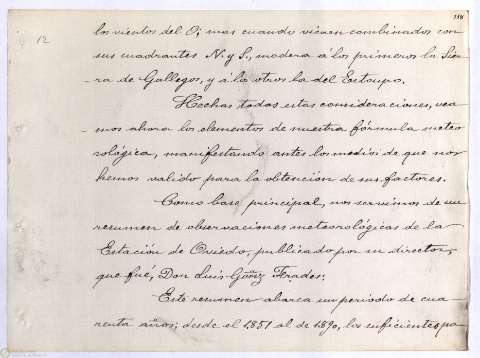 12
los vientos del O; mas cuando vienen combinados con
sus cuadrantes N. y S., modera á los primeros la Sie-
rra de Gallegos, y á lo otros la del Estoupo.
Hechas todas estas consideraciones, vea-
mos ahora los elementos de nuestra fórmula meteo-
rológica, manifestando antes los medios de que nos
hemos valido para la obtención de sus factores.
Como base principal, nos servimos de un
resumen de observaciones meteorológicas de la
Estación de Oviedo, publicado por su director,
que fué, Don Luis Gónz Frades.
Este resumen abarca un periodo de cua-
renta años; desde el 1.851 al de 1.890, los suficientes pa-